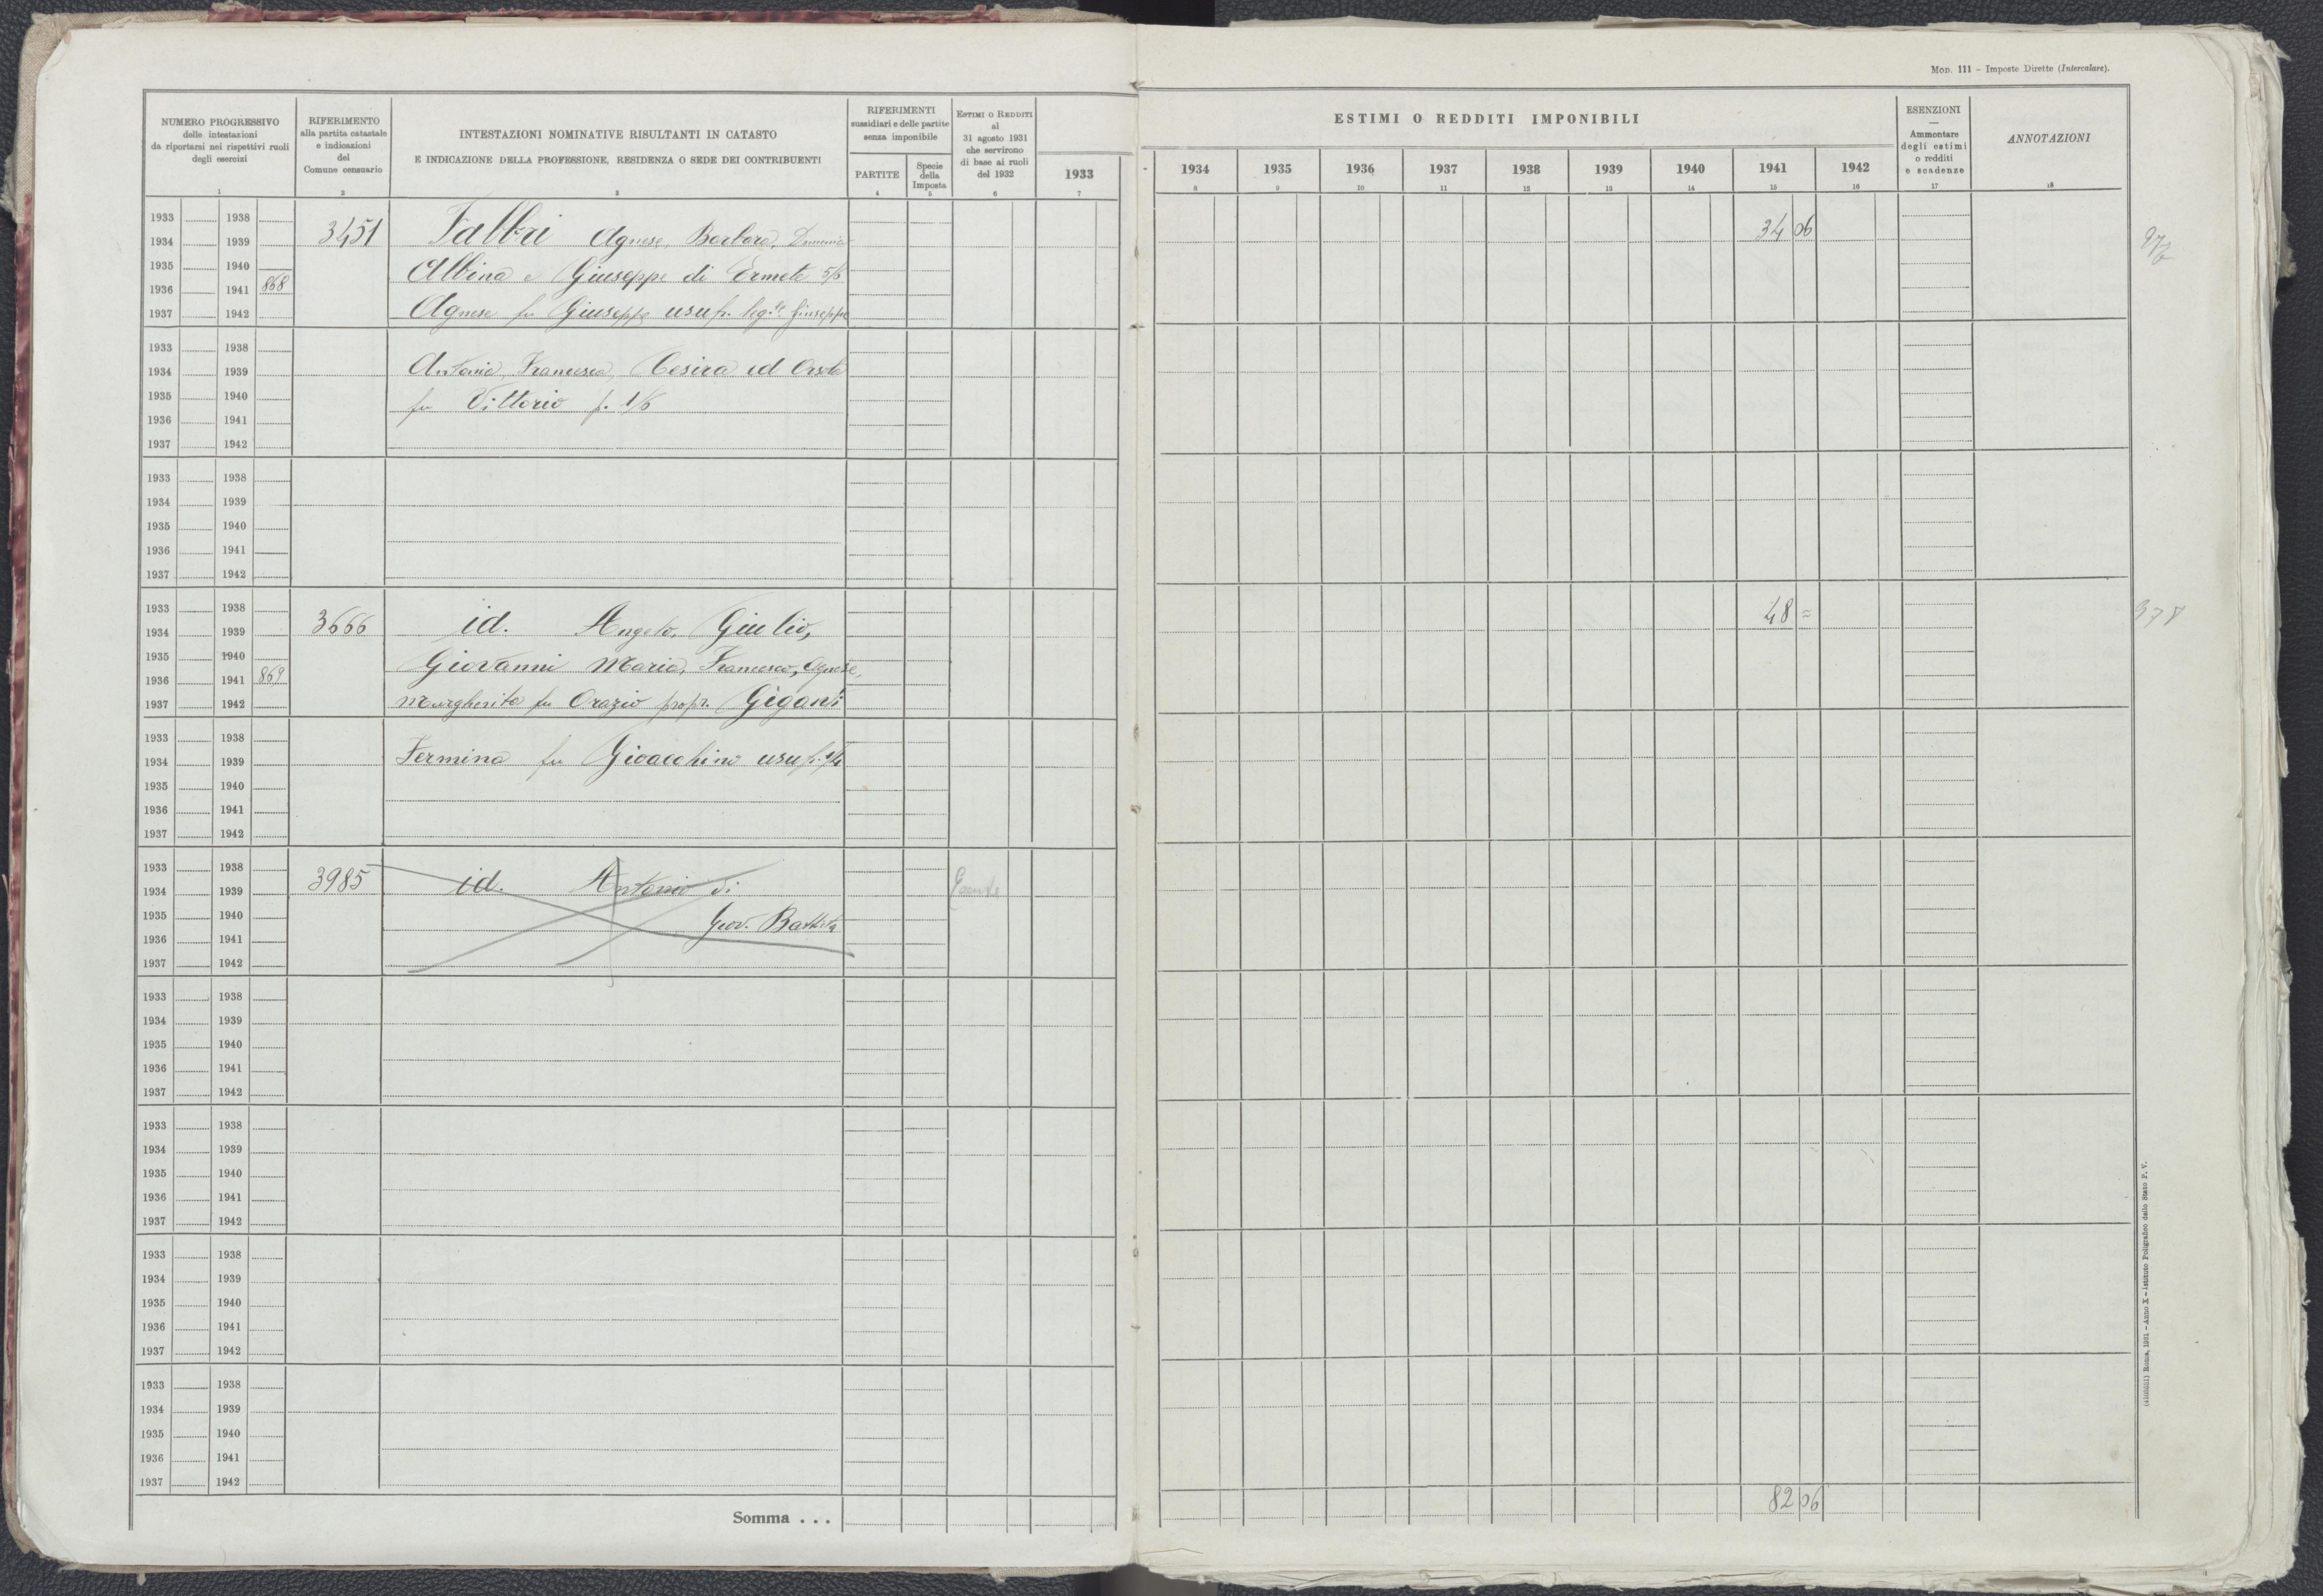 MOD. 111 – Imposte Dirette (Intercalare).
NUMERO PROGRESSIVO
delle intestazioni
da riportarsi nei rispettivi ruoli
degli esercizi
1
RIFERIMENTO
alla partita catastale
e indicazioni
del
Comune censuario
2
INTESTAZIONI NOMINATIVE RISULTANTI IN CATASTO
E INDICAZIONE DELLA PROFESSIONE, RESIDENZA O SEDE DEI CONTRIBUENTI
3
RIFERIMENTI
sussidiari e delle partite
senza imponibile
PARTITE
4
Specie
della
Imposta
5
ESTIMI O REDDITI
al
31 agosto 1931
che servirono
di base ai ruoli
del 1932
6
ESTIMI O REDDITI IMPONIBILI
1933 1934 1935 1936 1937 1938 1939 1940 1941 1942
7 8 9 10 11 12 13 14 15 16
ESENZIONI
—
Ammontare
degli estimi
o redditi
e scadenze
17
ANNOTAZIONI
18
1933 1938
1934 1939 3451 Fabbri Agnese, Barbara, 34 06
1935 1940 Albina e Giuseppe di Ermete 5/6
1936 1941 868
1937 1942 Agnese fu Giuseppe usuf. Giuseppe
1933 1938
1934 1939 Antonio, Francesca, Cesira ed Orsola
1935 1940 fu Vittorio p. 1/6
1936 1941
1937 1942
1933 1938
1934 1939
1935 1940
1936 1941
1937 1942
1933 1938
1934 1939 3666 id. Angelo, Giulio, 48 = 378
1935 1940 Giovanni Maria, Francesco, Agnese,
1936 1941 869
1937 1942 Margherita fu Orazio propr. Giganti
1933 1938
1934 1939 Fermina fu Gioacchino usuf.
1935 1940
1936 1941
1937 1942
1933 1938
1934 1939 3985 id. Antonio di Esente
1935 1940 Giov. Battista
1936 1941
1937 1942
1933 1938
1934 1939
1935 1940
1936 1941
1937 1942
1933 1938
1934 1939
1935 1940
1936 1941
1937 1942
1933 1938
1934 1939
1935 1940
1936 1941
1937 1942
1933 1938
1934 1939
1935 1940
1936 1941
1937 1942
Somma . . . 82 06
Roma, 1931 – Anno X – Istituto Poligrafico dello Stato P. V.